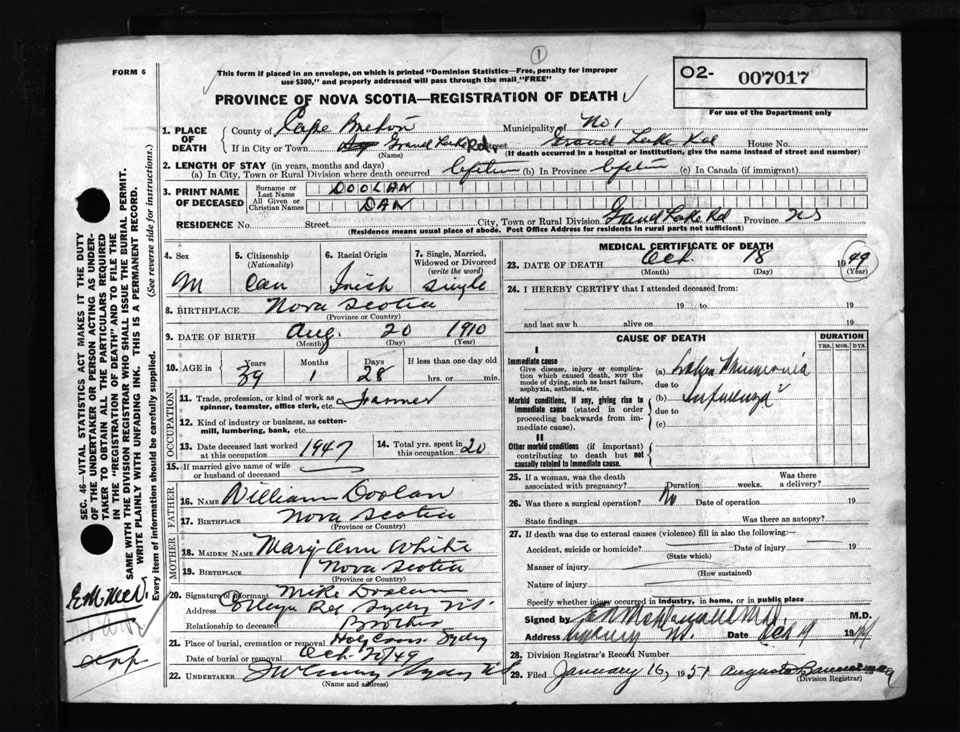 1
FORM 6
This form if placed in an envelope, on which is printed "Dominion Statistics—Free, penalty for improper
use $300," and properly addressed will pass through the mail "FREE"
O2- 007017
For use of the Department only
PROVINCE OF NOVA SCOTIA—REGISTRATION OF DEATH
1. PLACE OF DEATH
County of Cape Breton Municipality of No 1
If in City or Town Grand Lake Rd Street Grand Lake Rd House No.
(Name) (If death occurred in a hospital or institution, give the name instead of street and number)
2. LENGTH OF STAY (in years, months and days)
(a) In City, Town or Rural Division where death occurred Lifetime (b) In Province Lifetime (c) In Canada (if immigrant)
3. PRINT NAME OF DECEASED
Surname or Last Name DOOLAN
All Given or Christian Names DAN
RESIDENCE No. Street City, Town or Rural Division Grand Lake Rd Province NS
(Residence means usual place of abode. Post Office Address for residents in rural parts not sufficient)
4. Sex M
5. Citizenship (Nationality) Can
6. Racial Origin Irish
7. Single, Married, Widowed or Divorced (write the word) Single
8. BIRTHPLACE Nova Scotia
(Province or Country)
9. DATE OF BIRTH Aug. 20 1910
(Month) (Day) (Year)
10. AGE in Years 39 Months 1 Days 28 If less than one day old
hrs. or min.
OCCUPATION
11. Trade, profession or kind of work as spinner, teamster, office clerk, etc. Farmer
12. Kind of industry or business, as cotton-mill, lumbering, bank, etc.
13. Date deceased last worked at this occupation 1947
14. Total yrs. spent in this occupation 20
15. If married give name of wife or husband of deceased
FATHER
16. NAME William Doolan
17. BIRTHPLACE Nova Scotia
(Province or Country)
MOTHER
18. MAIDEN NAME Mary Ann White
19. BIRTHPLACE Nova Scotia
(Province or Country)
20. Signature of informant Mike Doolan
Address Rd Sydney N.S.
Relationship to deceased Brother
21. Place of burial, cremation or removal Holy Cross Sydney
Date of burial or removal Oct. 20/49
22. UNDERTAKER Sydney N S
(Name and address)
MEDICAL CERTIFICATE OF DEATH
23. DATE OF DEATH Oct. 18 1949
(Month) (Day) (Year)
24. I HEREBY CERTIFY that I attended deceased from:
19 to 19
and last saw h alive on 19
CAUSE OF DEATH
DURATION
YRS. MOS. DYS.
I
Immediate cause
Give disease, injury or complication which caused death, not the mode of dying, such as heart failure, asphyxia, asthenia, etc.
(a) Lobar Pneumonia
due to
Morbid conditions, if any, giving rise to immediate cause (stated in order proceeding backwards from immediate cause).
(b) Influenza
due to
(c)
II
Other morbid conditions (if important) contributing to death but not causally related to immediate cause.
25. If a woman, was the death associated with pregnancy? Duration weeks. Was there a delivery?
26. Was there a surgical operation? No Date of operation 19
State findings Was there an autopsy?
27. If death was due to external causes (violence) fill in also the following:
Accident, suicide or homicide? Date of injury 19
(State which)
Manner of injury
(How sustained)
Nature of injury
Specify whether injury occurred in industry, in home, or in public place
Signed by M.D.
Address Sydney N.S. Date Oct 19 1949
28. Division Registrar's Record Number
29. Filed January 16, 1951
(Division Registrar)
SEC. 46—VITAL STATISTICS ACT MAKES IT THE DUTY
OF THE UNDERTAKER OR PERSON ACTING AS UNDERTAKER TO OBTAIN ALL THE PARTICULARS REQUIRED
IN THE "REGISTRATION OF DEATH" AND TO FILE THE
SAME WITH THE DIVISION REGISTRAR WHO SHALL ISSUE THE BURIAL PERMIT.
WRITE PLAINLY WITH UNFADING INK. THIS IS A PERMANENT RECORD.
Every item of information should be carefully supplied. (See reverse side for instructions.)